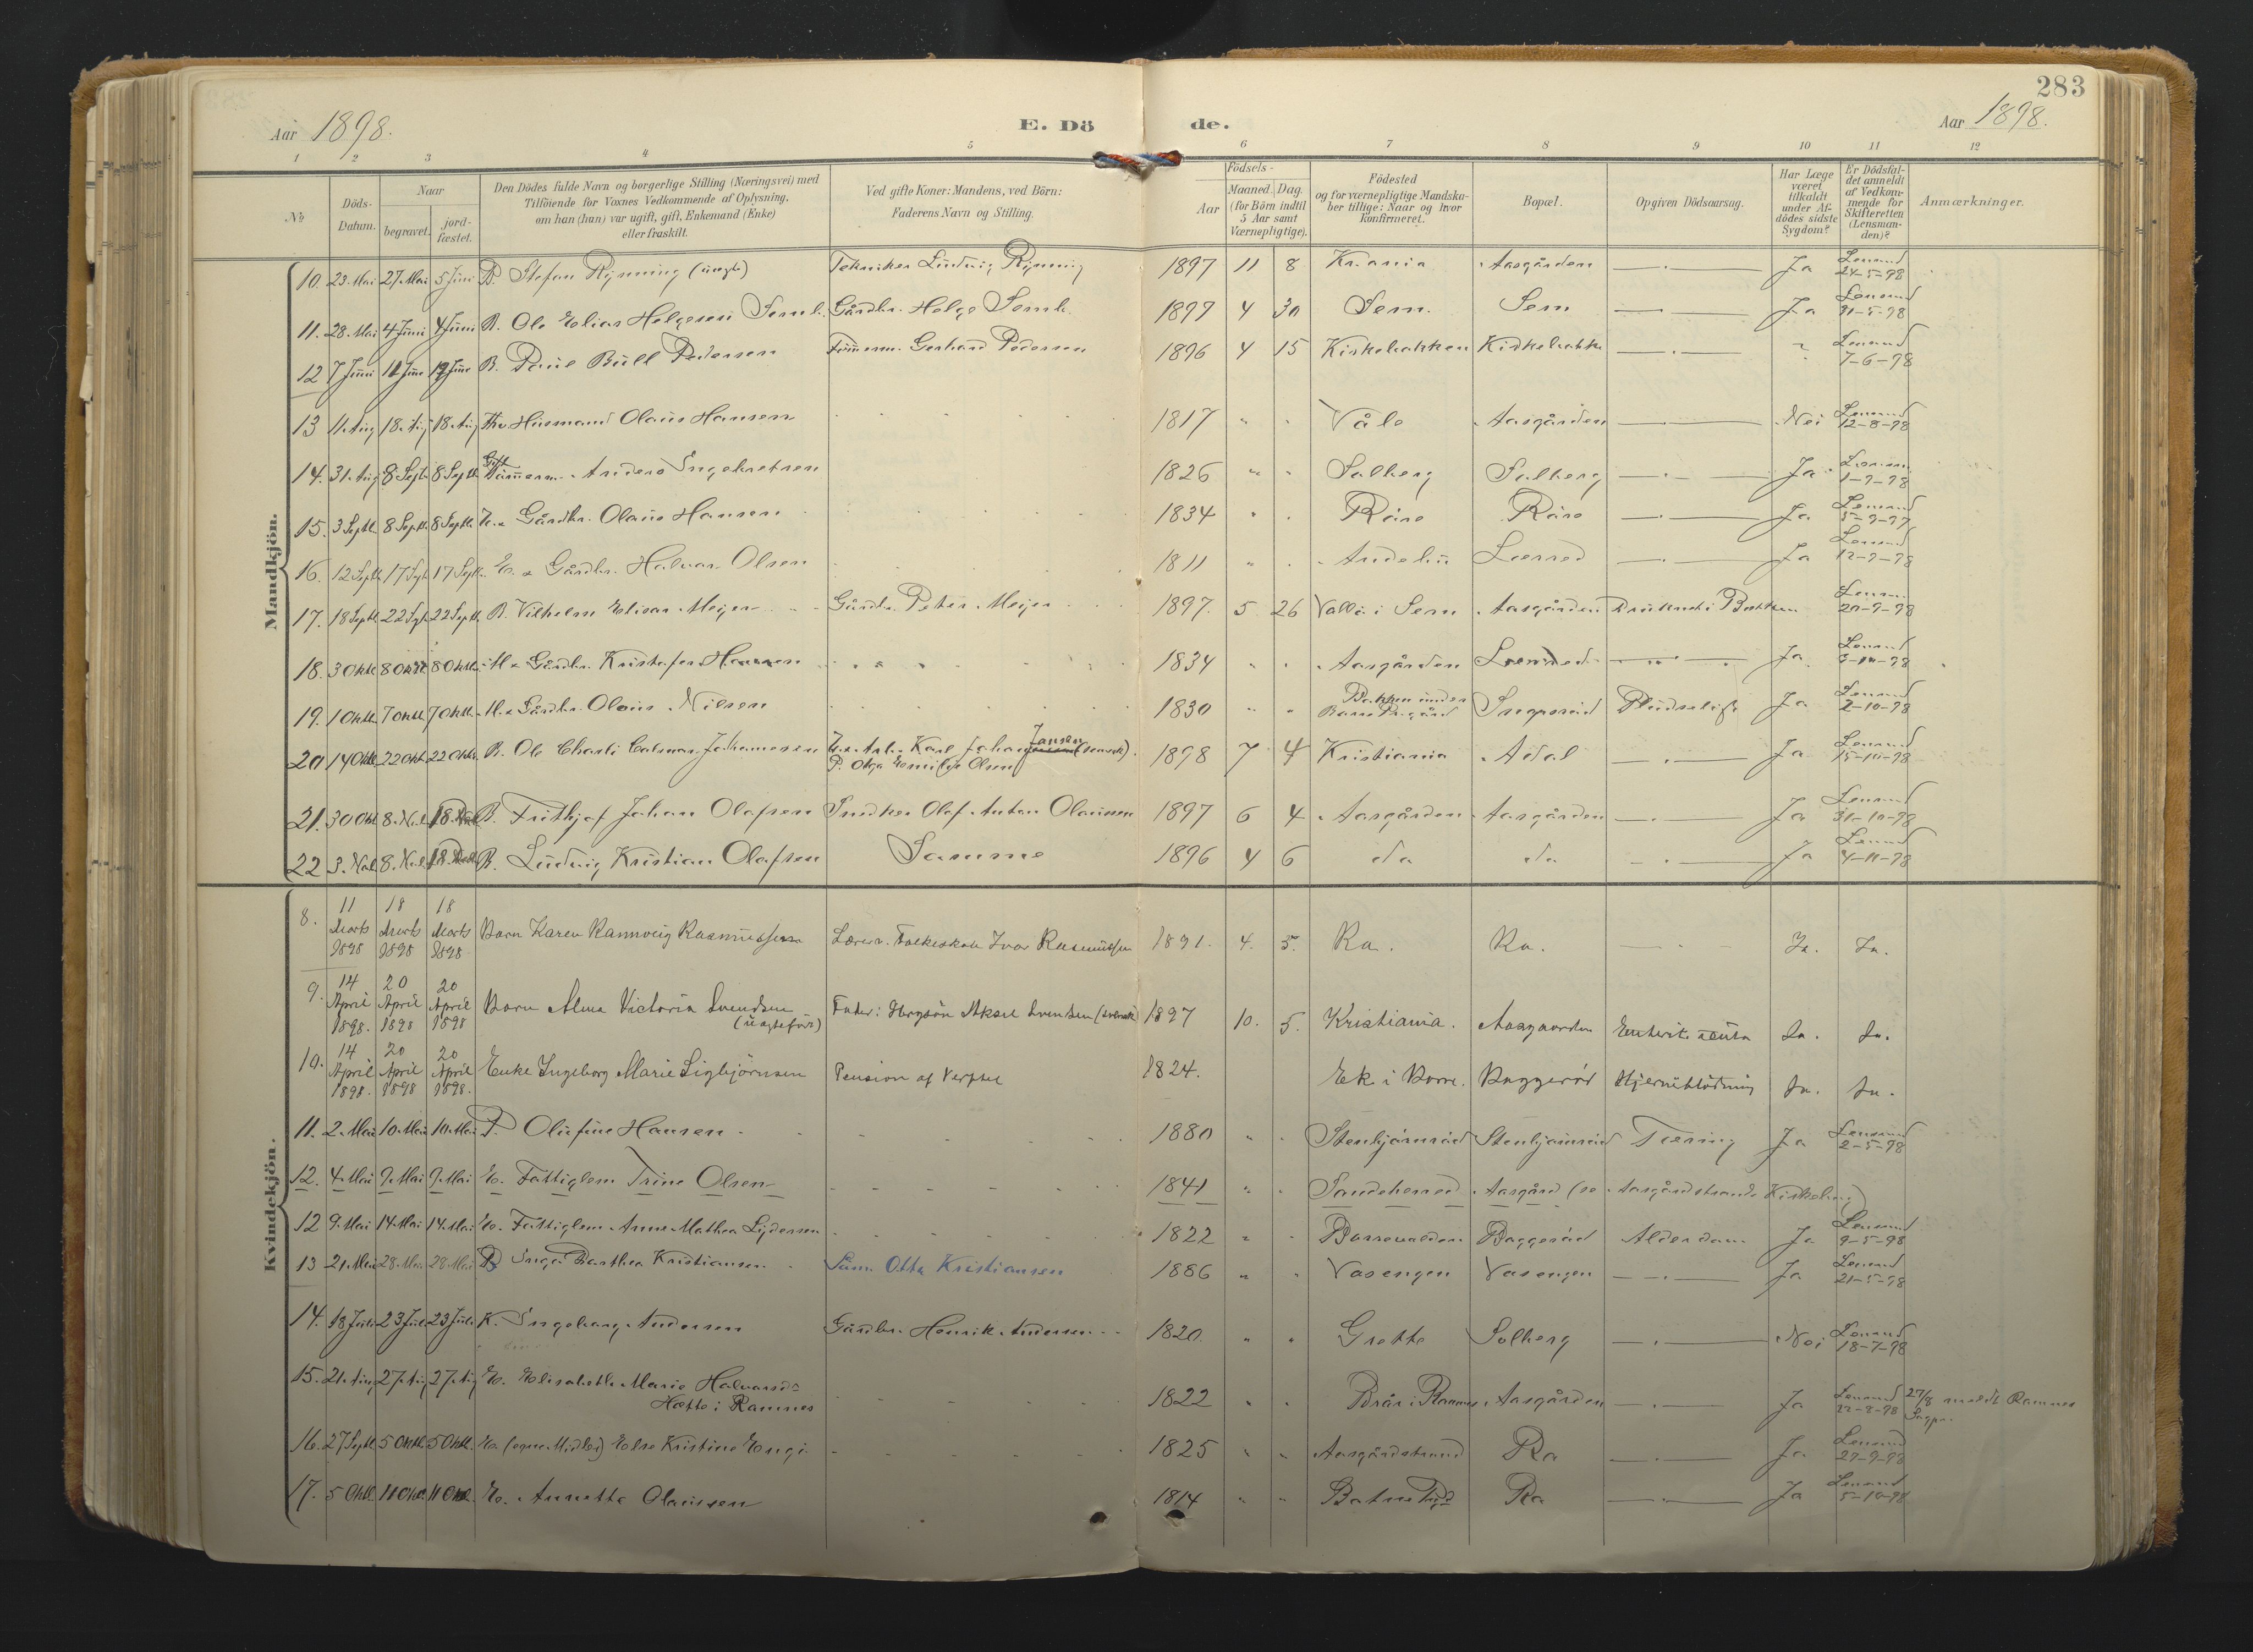 283
Aar 1898.
E. Dö de.
Aar 1898.
1 2 3 4 5 6 7 8 9 10 11 12
No
Döds-Datum.
Naar
begravet.
jord-fæstet.
Den Dödes fulde Navn og borgerlige Stilling (Næringsvei) med
Tilföiende for Voxnes Vedkommende af Oplysning,
om han (hun) var ugift, gift, Enkemand (Enke)
eller fraskilt.
Ved gifte Koner: Mandens, ved Börn:
Faderens Navn og Stilling.
Födsels-
Aar
Maaned. Dag.
(for Börn indtil
5 Aar samt
Værnepligtige).
Födested
og for værnepligtige Mandska-
ber tillige: Naar og hvor
Konfirmeret.
Bopæl.
Opgiven Dödsaarsag.
Har Læge
været
tilkaldt
under Af-
dödes sidste
Sygdom?
Er Dödsfal-
det anmeldt
af Vedkom-
mende for
Skifteretten
(Lensman-
den)?
Anmærkninger.
Mandkjön.
10. 23. Mai 27. Mai 5 Juni B. Stefan Rynning (uægte) Tekniker Ludvig Rynning 1897 11 8 Kr.ania Aasgården Ja Lensmd 24-5-98
11. 28. Mai 4 Juni 4 Juni B. Ole Elias Helgesen Semb. Gårdbr. Helge Semb. 1897 4 30 Sem. Sem Ja Lensmd 31-5-98
12 7 Juni 11 Juni 19 Juni B. Paul Bull Pedersen Tømmerm. Gerhard Pedersen 1896 4 15 Kirkebakken Kirkebakke Lensmd 7-6-98
13 11. Aug 18. Aug 18. Aug Husmand Olaus Hansen 1817 Våle Aasgården Nei Lensmd 12-8-98
14. 31. Aug 8. Septb. 8 Septb. Gift Tømmerm. Anders Engebretsen 1826 Solberg Solberg Ja Lensm. 1-9-98
15. 3 Septb. 8 Septb. 8 Septb. Gårdbr. Olaus Hansen 1834 Røre Røre Ja Lensmd
16. 12 Septb. 17 Septb. 17 Septb. E. Gårdbr. Halvor Olsen 1811 Andebu Ja Lensmd 12-9-98
17. 18 Septb. 22 Septb. 22 Septb. B. Vilhelm Elisar Meyer Gårdbr. Peter Meyer 1897. 5 26 Vallø i Sem Aasgården Druknet i Bækken Lensmd 20-9-98
18. 3 Oktb. 8 Oktb. 8 Oktb. Gårdbr. Kristofer Hansen 1834 Aasgården Ja Lensmd
19. 1 Oktb. 7 Oktb. 7 Oktb. Gårdbr. Olaus Nilsen 1830 Bakken under Borre Pr.gård Ja Lensmd 2-10-98
20 14 Oktb. 22 Oktb. 22 Oktb. B. Ole Charli Johannesen Karl Johan Jansen (svensk). P. Olga Emilie Olsen 1898 7 4 Kristiania Adal Ja Lensmd 15-10-98
21. 30 Okt 8. Nvb. 18. B. Frithjof Johan Olafsen Snedker Olaf Anton Olaussen 1897 6 4 Aasgården Aasgården Ja Lensmd 31-10-98
22 3. Nvb. 8. Nvb. 18. B. Ludvig Kristian Olafsen Samme 1896 4 6 do do Ja Lensmd 4-11-98
Kvindekjön.
8. 11 Marts 1898 18 Marts 1898 18 Marts 1898 Barn Karen Rannveig Rasmussen Lærer v. Folkeskole Ivar Rasmussen 1891. 4. 5. Ra. Ra. Ja. Ja.
9. 14 April 1898. 20 April 1898 20 April 1898 Barn Alma Victoria Svendsen (uægtefødt) Fader: Aksel Svendsen (svensk) 1897 10. 5. Kristiania. Aasgaarden Enterit. acuta Ja. Ja.
10. 14 April 1898. 20 April 1898 20 April 1898. Enke Ingeborg Marie Sigbjørnsen Pension af Verftet 1824. Ek i Borre. Baggerød Hjerneblødning Ja. Ja.
11. 2. Mai 10. Mai 10. Mai P. Olufine Hansen 1880 Stenbjørnrød Stenbjørnrød Tæring Ja Lensmd 2-5-98
12. 4. Mai 9. Mai 9. Mai E. Fattiglem Trine Olsen 1841 Sandeherred Aasgård (se Aasgårdstrands Kirkebog)
12 9. Mai 14. Mai 14. Mai E. Fattiglem Anne Mathea Sydersen 1822 Borrevolden Baggerød Alderdom Ja Lensmd 9-5-98
13 21. Mai 28. Mai 28. Mai P. Inga Barthea Kristiansen Søm. Otto Kristiansen 1886 Vasengen Vasengen Ja Lensmd 21-5-98
14. 18 Juli 23 Juli 23 Juli K. Ingeborg Andersen Gårdbr. Henrik Andersen 1820. Grette Solberg Nei Lensmd 18-7-98
15. 21. Aug 27. Aug 27. Aug E. Elisabeth Marie Halvorsd. Hette i Ramnes 1822 Brår i Ramnes Aasgården Ja Lensmd 22-8-98 27/8 meldt Ramnes Sogpr.
16. 27 Septb. 5 Oktb. 5 Oktb. E. (egne Midler) Else Kristine Engø 1825 Aasgårdstrand Ra Ja Lensmd
17. 5 Oktb. 11 Oktb. 11 Oktb. E. Annette Olaussen 1814 Ra Ja Lensmd 5-10-98